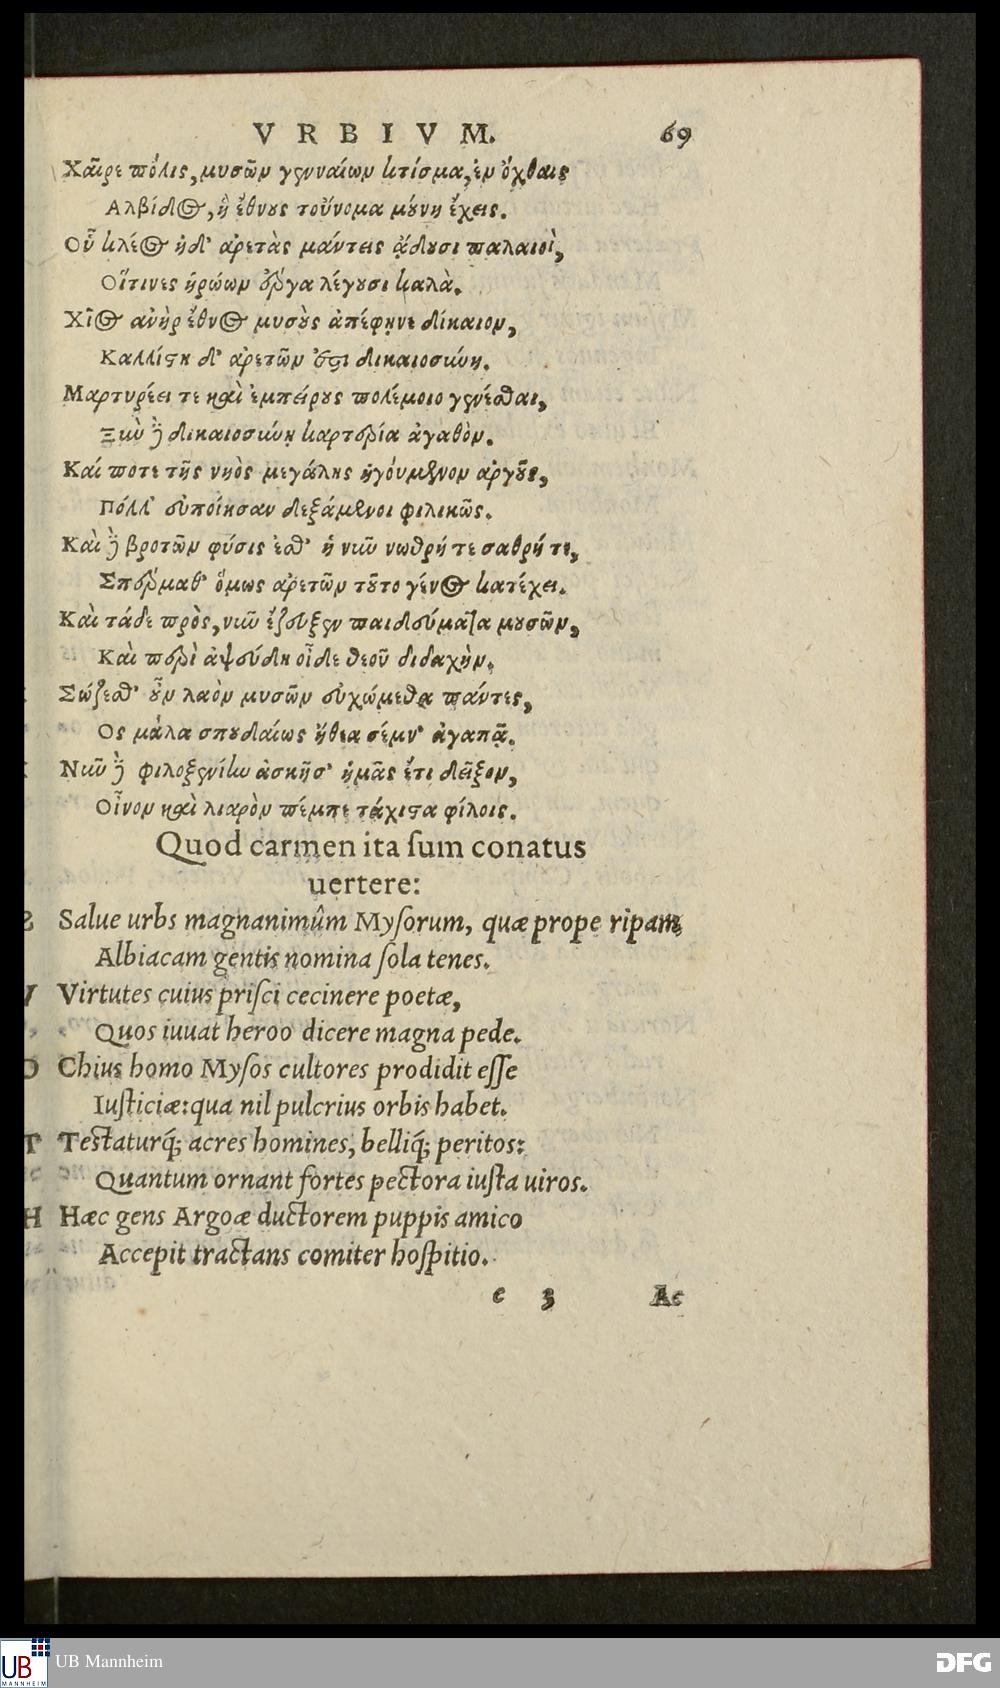 VRBIVM. 69
Χαῖρε πόλις, μυσῶν γενναίων κτίσμα, ἐν ὄχθαις
Αλβίδος, ἣ ἔθνους τοὔνομα μούνη ἔχεις.
Οὗ κλέος ἠδ' ἀρετὰς μάντεις ᾄδουσι παλαιοὶ,
Οἵτινες ἡρώων ἔργα λέγουσι καλὰ.
Χῖος ἀνὴρ ἔθνος μυσοὺς ἀπέφηνε δίκαιον,
Καλλίστη δ' ἀρετῶν ἐστι δικαιοσύνη.
Μαρτυρέει τε καὶ ἐμπείρους πολέμοιο γενέσθαι,
Ξὺν δὲ δικαιοσύνη καρτερία ἀγαθὸν.
Καί ποτε τῆς νηὸς μεγάλης ἡγούμενον ἀργοῦς,
Πόλλ' εὐποίησαν δεξάμενοι φιλικῶς.
Καὶ δὲ βροτῶν φύσις ἐσθ' ἡ νῦν νωθρή τε σαθρή τε,
Σπέρμαθ' ὅμως ἀρετῶν τοῦτο γένος κατέχει.
Καὶ τάδε πρὸς, νῦν ἔζευξεν παιδεύματα μουσῶν,
Καὶ περὶ ἀψεύδη οἶδε θεοῦ διδαχὴν.
Σώζεσθ' οὖν λαὸν μυσῶν εὐχώμεθα πάντες,
Ος μάλα σπουδαίως ἤθεα σέμν' ἀγαπᾷ.
Νῦν δὲ φιλοξενίην ἀσκῆσ' ἡμᾶς ἔτι δεῖξον,
Οἶνον καὶ λιαρὸν πέμπε τάχιστα φίλοις.
Quod carmen ita ſum conatus
uertere:
Salue urbs magnanimûm Myſorum, quæ prope ripam
Albiacam gentis nomina ſola tenes.
Virtutes cuius priſci cecinere poetæ,
Quos iuuat heroo dicere magna pede.
Chius homo Myſos cultores prodidit eſſe
Iuſticiæ: qua nil pulcrius orbis habet.
Teſtaturq́; acres homines, belliq́; peritos:
Quantum ornant fortes pectora iuſta uiros.
Hæc gens Argoæ ductorem puppis amico
Accepit tractans comiter hoſpitio.
e 3 Ac
UB
MANNHEIM
UB Mannheim
DFG